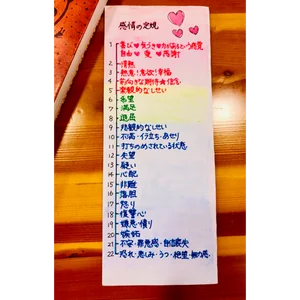 感情の定規
1 喜び♥気づき♥力があるという感覚
自由♥愛♥感謝
2 情熱
3 熱意!意欲!幸福
4 前向きな期待★信念
5 楽観的なしせい
6 希望
7 満足
8 退屈
9 悲観的なしせい
10 不満・イラ立ち・あせり
11 打ちのめされている状態
12 失望
13 疑い
14 心配
15 非難
16 落胆
17 怒り
18 復讐心
19 嫌悪・憤り
20 嫉妬
21 不安・罪悪感・自信喪失
22 恐れ・悲しみ・うつ・絶望・無力感